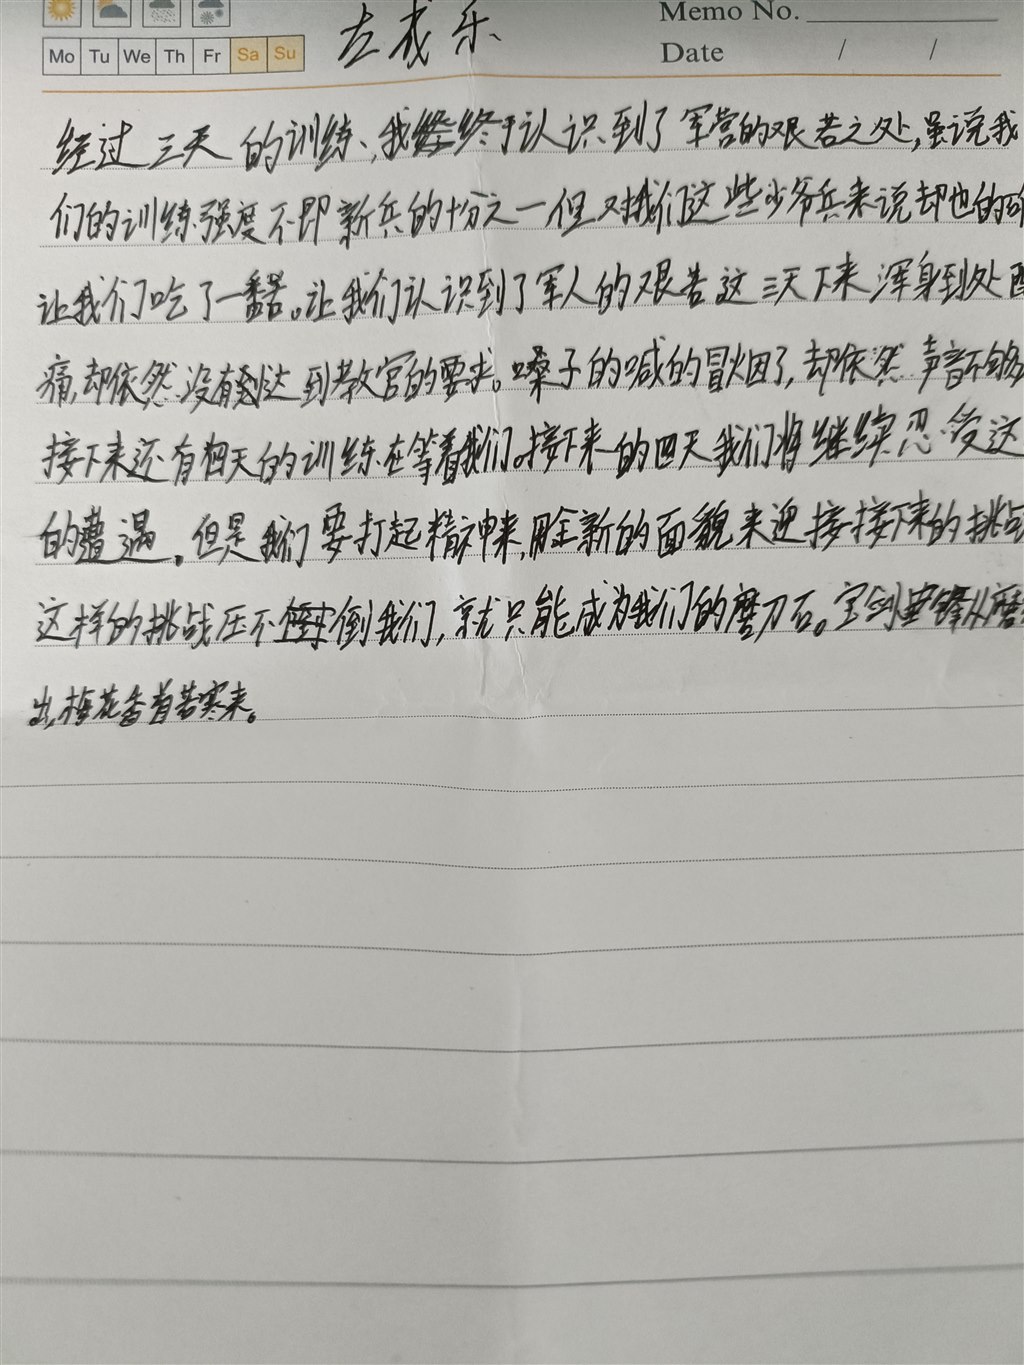 Memo No.
Mo Tu We Th Fr Sa Su
左成乐
Date / /
经过三天的训练，我终于认识到了军营的艰苦之处，虽说我
们的训练强度不即新兵的十分之一但对我们这些少爷兵来说却也的确
让我们吃了一番苦。让我们认识到了军人的艰苦这三天下来浑身到处
痛，却依然没有达到教官的要求。嗓子的喊的冒烟了，却依然声音不够
接下来还有四天的训练在等着我们。接下来的四天我们将继续忍受这
的遭遇，但是我们要打起精神来，用全新的面貌来迎接接下来的挑战
这样的挑战压不倒我们，就只能成为我们的磨刀石。宝剑锋从磨
出，梅花香自苦寒来。